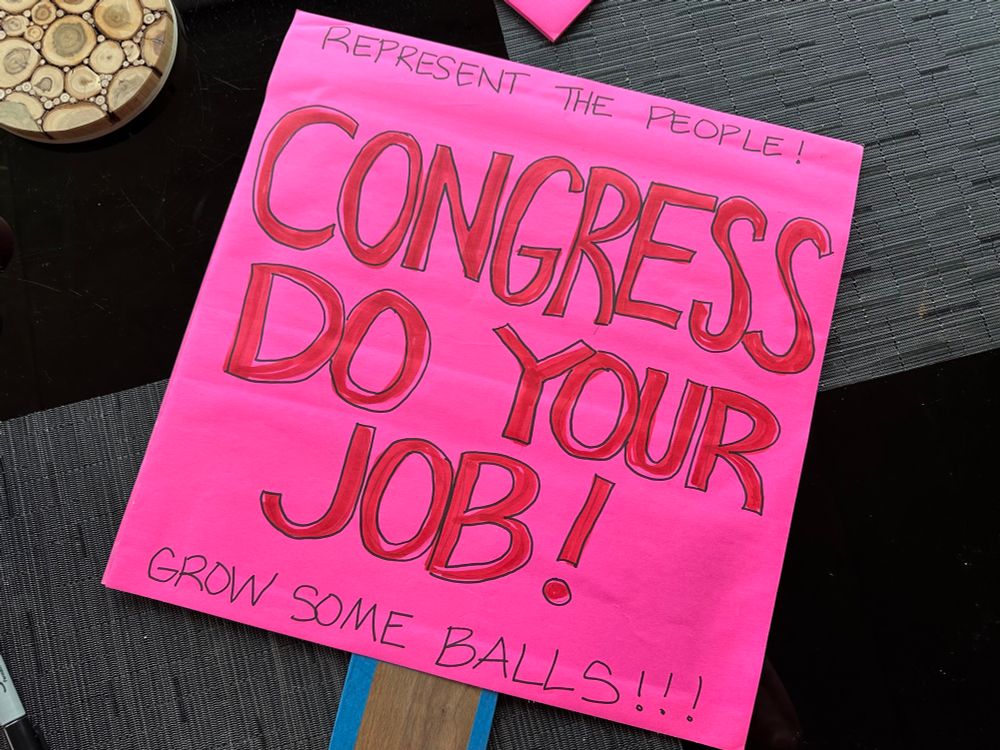 REPRESENT THE PEOPLE!
CONGRESS
DO YOUR
JOB!
GROW SOME BALLS!!!